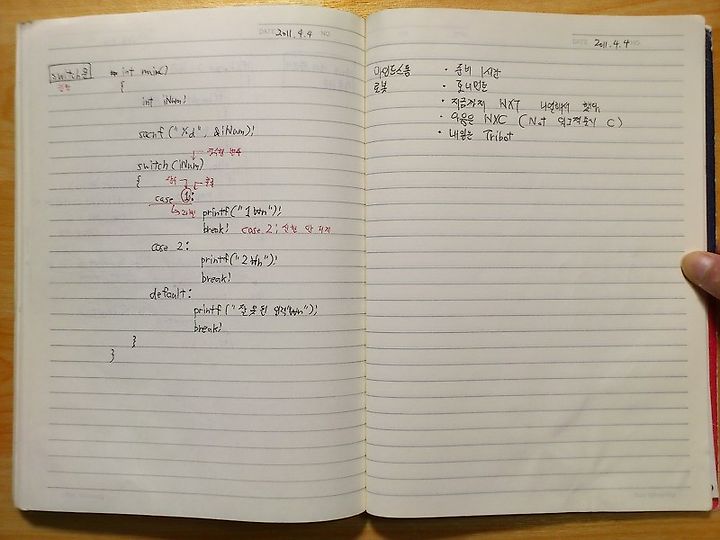 DATE 2011.4.4 NO
switch문 int main()
{
int iNum;
scanf("%d", &iNum);
정수형 변수
switch(iNum)
{ 정수
case 1:
printf("1\n");
break; case 2; 실행 안 되게
case 2:
printf("2\n");
break;
default:
printf("잘못된 입력\n");
break;
}
}
DATE 2011.4.4 NO
마인드스톰 · 준비 1시간
로봇
· 지금까지 NXT 했었음
· 다음은 NXC (Not C)
· 내일은 Tribot